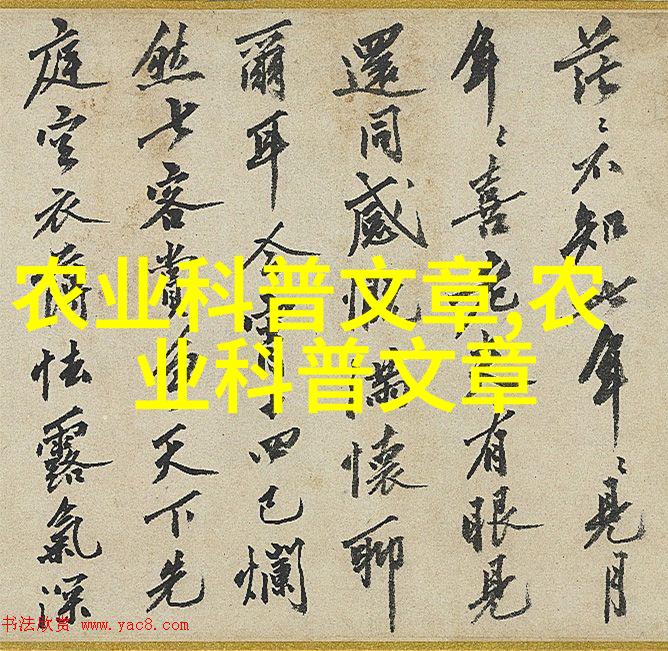 茫〻不知年〻見月
年〻喜有眼見
還同感慨懷聊
爾耳今宵四已爛
然七客賞天下先
庭空衣薄怯露氣深
农业科普文章,农
业科普文章
书法欣赏 www.yac8.com